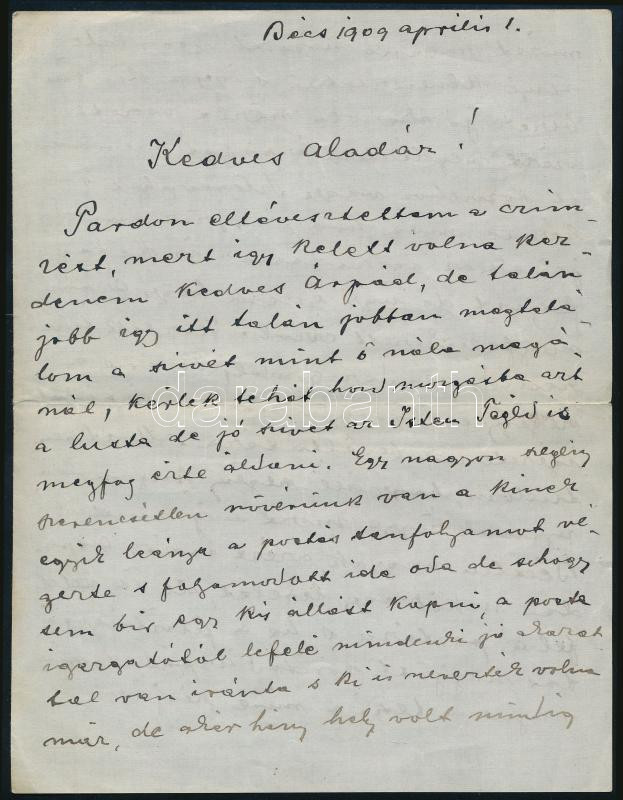 Bécs 1909 április 1.
Kedves Aladár!
Pardon eltévesztettem a czim-
zést, mert igy kelett volna kez-
denem Kedves Árpád, de talán
jobb igy itt talán jobban megtalá-
lom a szivét mint ő nála magá-
nál, kérlek tehát hozd mozgásba azt
a lusta de jó szivet az Isten Téged is
megfog érte áldani. Egy nagyon szegény
szerencsétlen nővérünk van a kinek
egyik leánya a postás tanfolyamot vé-
gezte s folyamodott ide oda de sehogy
sem bir egy kis állást kapni, a posta
igazgatótól lefelé mindenki jó akarat
tal van iránta s ki is nevezték volna
már, de ahány hely volt mindig
darabanth